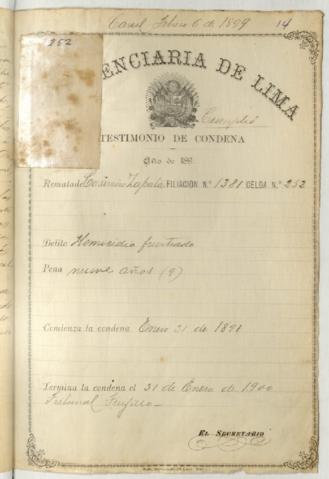 Febrero 6 de 1899 14
252
ENCIARIA DE LIMA
Cumplió
TESTIMONIO DE CONDENA
Año de 189
Rematado Casimiro Zapata FILIACION N.º 1381 CELDA N.º 252
Delito Homicidio frustrado
Pena nueve años (9)
Comienza la condena Enero 31 de 1891
Termina la condena el 31 de Enero de 1900
Tribunal Trujillo
EL SECRETARIO